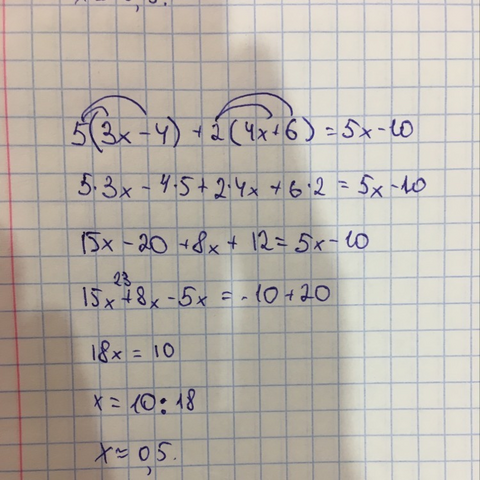 5(3x-4)+2(4x+6)=5x-10
5·3x-4·5+2·4x+6·2=5x-10
15x-20+8x+12=5x-10
23
15x+8x-5x=-10+20
18x=10
x=10:18
x=0,5.